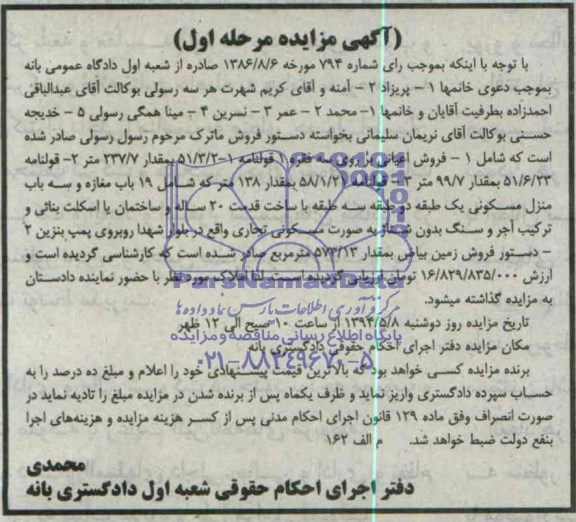 (آگهی مزایده مرحله اول)
با توجه با اینکه بموجب رای شماره ۷۹۴ مورخه ۱۳۸۶/۸/۶ صادره از شعبه اول دادگاه عمومی بانه
بموجب دعوی خانمها ۱ - پریزاد ۲ - آمنه و آقای کریم شهرت هر سه رسولی بوکالت آقای عبدالباقی
احمدزاده بطرفیت آقایان و خانمها ۱- محمد ۲ - عمر ۳ - نسرین ۴ - مینا همگی رسولی ۵ - خدیجه
حسنی بوکالت آقای نریمان سلیمانی بخواسته دستور فروش ماترک مرحوم رسول رسولی صادر شده
است که شامل ۱ - فروش اعیانی بر روی سه فقره ۱ قولنامه ۱-۵۱/۳/۲ بمقدار ۲۳۷/۷ متر ۲- قولنامه
۵۱/۶/۲۳ بمقدار ۹۹/۷ متر ۳- قولنامه ۵۸/۱/۲۱ بمقدار ۱۳۸ متر که شامل ۱۹ باب مغازه و سه باب
منزل مسکونی یک طبقه دو طبقه سه طبقه با ساخت قدمت ۲۰ ساله و ساختمان با اسکلت بنائی و
ترکیب آجر و سنگ بدون شناژ به صورت مسکونی تجاری واقع در بلوار شهدا روبروی پمپ بنزین ۲
- دستور فروش زمین بیاض بمقدار ۵۷۳/۱۳ مترمربع صادر شده است که کارشناسی گردیده است و
ارزش ۱۶/۸۲۹/۸۳۵/۰۰۰ تومان ارزیابی گردیده است. لذا املاک مورد نظر با حضور نماینده دادستان
به مزایده گذاشته میشود.
تاریخ مزایده روز دوشنبه ۱۳۹۴/۵/۸ از ساعت ۱۰ صبح الی ۱۲ ظهر
مکان مزایده دفتر اجرای احکام حقوقی دادگستری بانه
برنده مزایده کسی خواهد بود که بالاترین قیمت پیشنهادی خود را اعلام و مبلغ ده درصد را به
حساب سپرده دادگستری واریز نماید و ظرف یکماه پس از برنده شدن در مزایده مبلغ را تادیه نماید در
صورت انصراف وفق ماده ۱۲۹ قانون اجرای احکام مدنی پس از کسر هزینه مزایده و هزینه‌های اجرا
بنفع دولت ضبط خواهد شد. م الف ۱۶۲
محمدی
دفتر اجرای احکام حقوقی شعبه اول دادگستری بانه
ParsNamadData
مرکز فرآوری اطلاعات پارس نماد داده ها
پایگاه اطلاع رسانی مناقصه و مزایده
۰۲۱-۸۸۳۴۹۶۷۰-۵